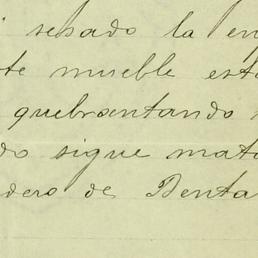 sesado la en
te mueble est
quebrantando
do sigue mat
dero de Benta